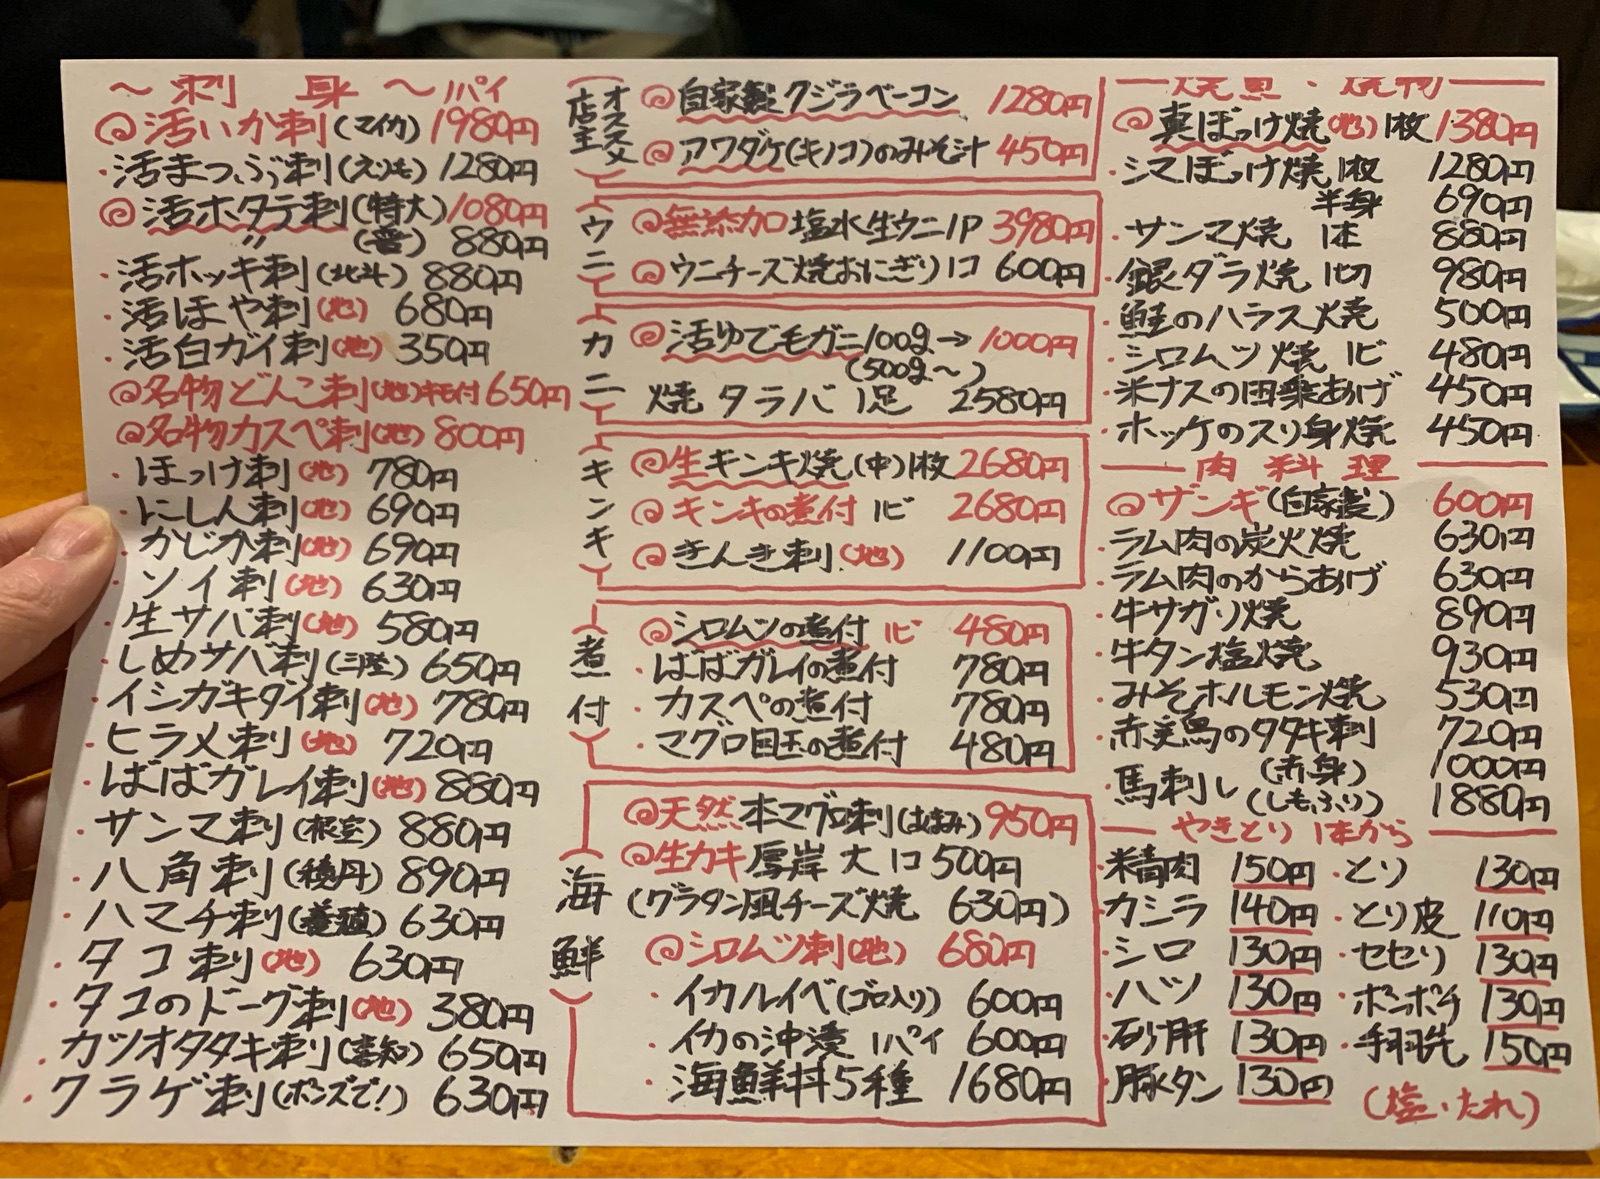 ～刺身～ 1パイ
活いか刺(マイカ) 1980円
・活まつぶ刺(えりも) 1280円
活ホタテ刺(特大) 1080円
〃 (普) 880円
・活ホッキ刺(北斗) 880円
・活ほや刺(地) 680円
・活白ガイ刺(地) 350円
名物どんこ刺(地)キモ付 650円
名物カスペ刺(地) 800円
・ほっけ刺(地) 780円
・にしん刺(地) 690円
・かじか刺(地) 690円
・ソイ刺(地) 630円
・生サバ刺(地) 580円
・しめサバ刺(三陸) 650円
・イシガキダイ刺(地) 780円
・ヒラメ刺(地) 720円
・ばばガレイ刺(地) 880円
・サンマ刺(根室) 880円
・八角刺(積丹) 890円
・ハマチ刺(養殖) 630円
・タコ刺(地) 630円
・タコのドーグ刺(地) 380円
・カツオタタキ刺(高知) 650円
・クラゲ刺(ポンズで!) 630円
店主オススメ
自家製クジラベーコン 1280円
アワダケ(キノコ)のみそ汁 450円
ウニ
無添加塩水生ウニ1P 3980円
ウニチーズ焼おにぎり1コ 600円
カニ
活ゆで毛ガニ100g→1000円
(500g～)
焼タラバ1足 2580円
キンキ
生キンキ焼(中)1枚 2680円
キンキの煮付 1ピ 2680円
きんき刺(地) 1100円
煮付
シロムツの煮付 1ピ 480円
・ばばガレイの煮付 780円
・カスペの煮付 780円
・マグロ目玉の煮付 480円
海鮮
天然本マグロ刺 950円
生カキ厚岸大1コ 500円
(グラタン風チーズ焼 630円)
シロムツ刺(地) 680円
・イカルイベ(ゴロ入り) 600円
・イカの沖漬1パイ 600円
・海鮮丼5種 1680円
焼魚・焼物
真ほっけ焼(地)1枚 1380円
・シマほっけ焼1枚 1280円
半身 690円
・サンマ焼 1本 880円
・銀ダラ焼 1切 980円
・鮭のハラス焼 500円
・シロムツ焼 1ピ 480円
・米ナスの田楽あげ 450円
・ホッケのスリ身焼 450円
肉料理
ザンギ(自家製) 600円
・ラム肉の炭火焼 630円
・ラム肉のからあげ 630円
・牛サガリ焼 890円
・牛タン塩焼 930円
・みそホルモン焼 530円
・赤美鳥のタタキ刺 720円
・馬刺し(赤身) 1000円
(しもふり) 1880円
やきとり 1本から
・精肉 150円 ・とり 130円
・カシラ 140円 ・とり皮 110円
・シロ 130円 ・セセリ 130円
・ハツ 130円 ・ボンボチ 130円
・砂肝 130円 ・手羽先 150円
・豚タン 130円 (塩・たれ)